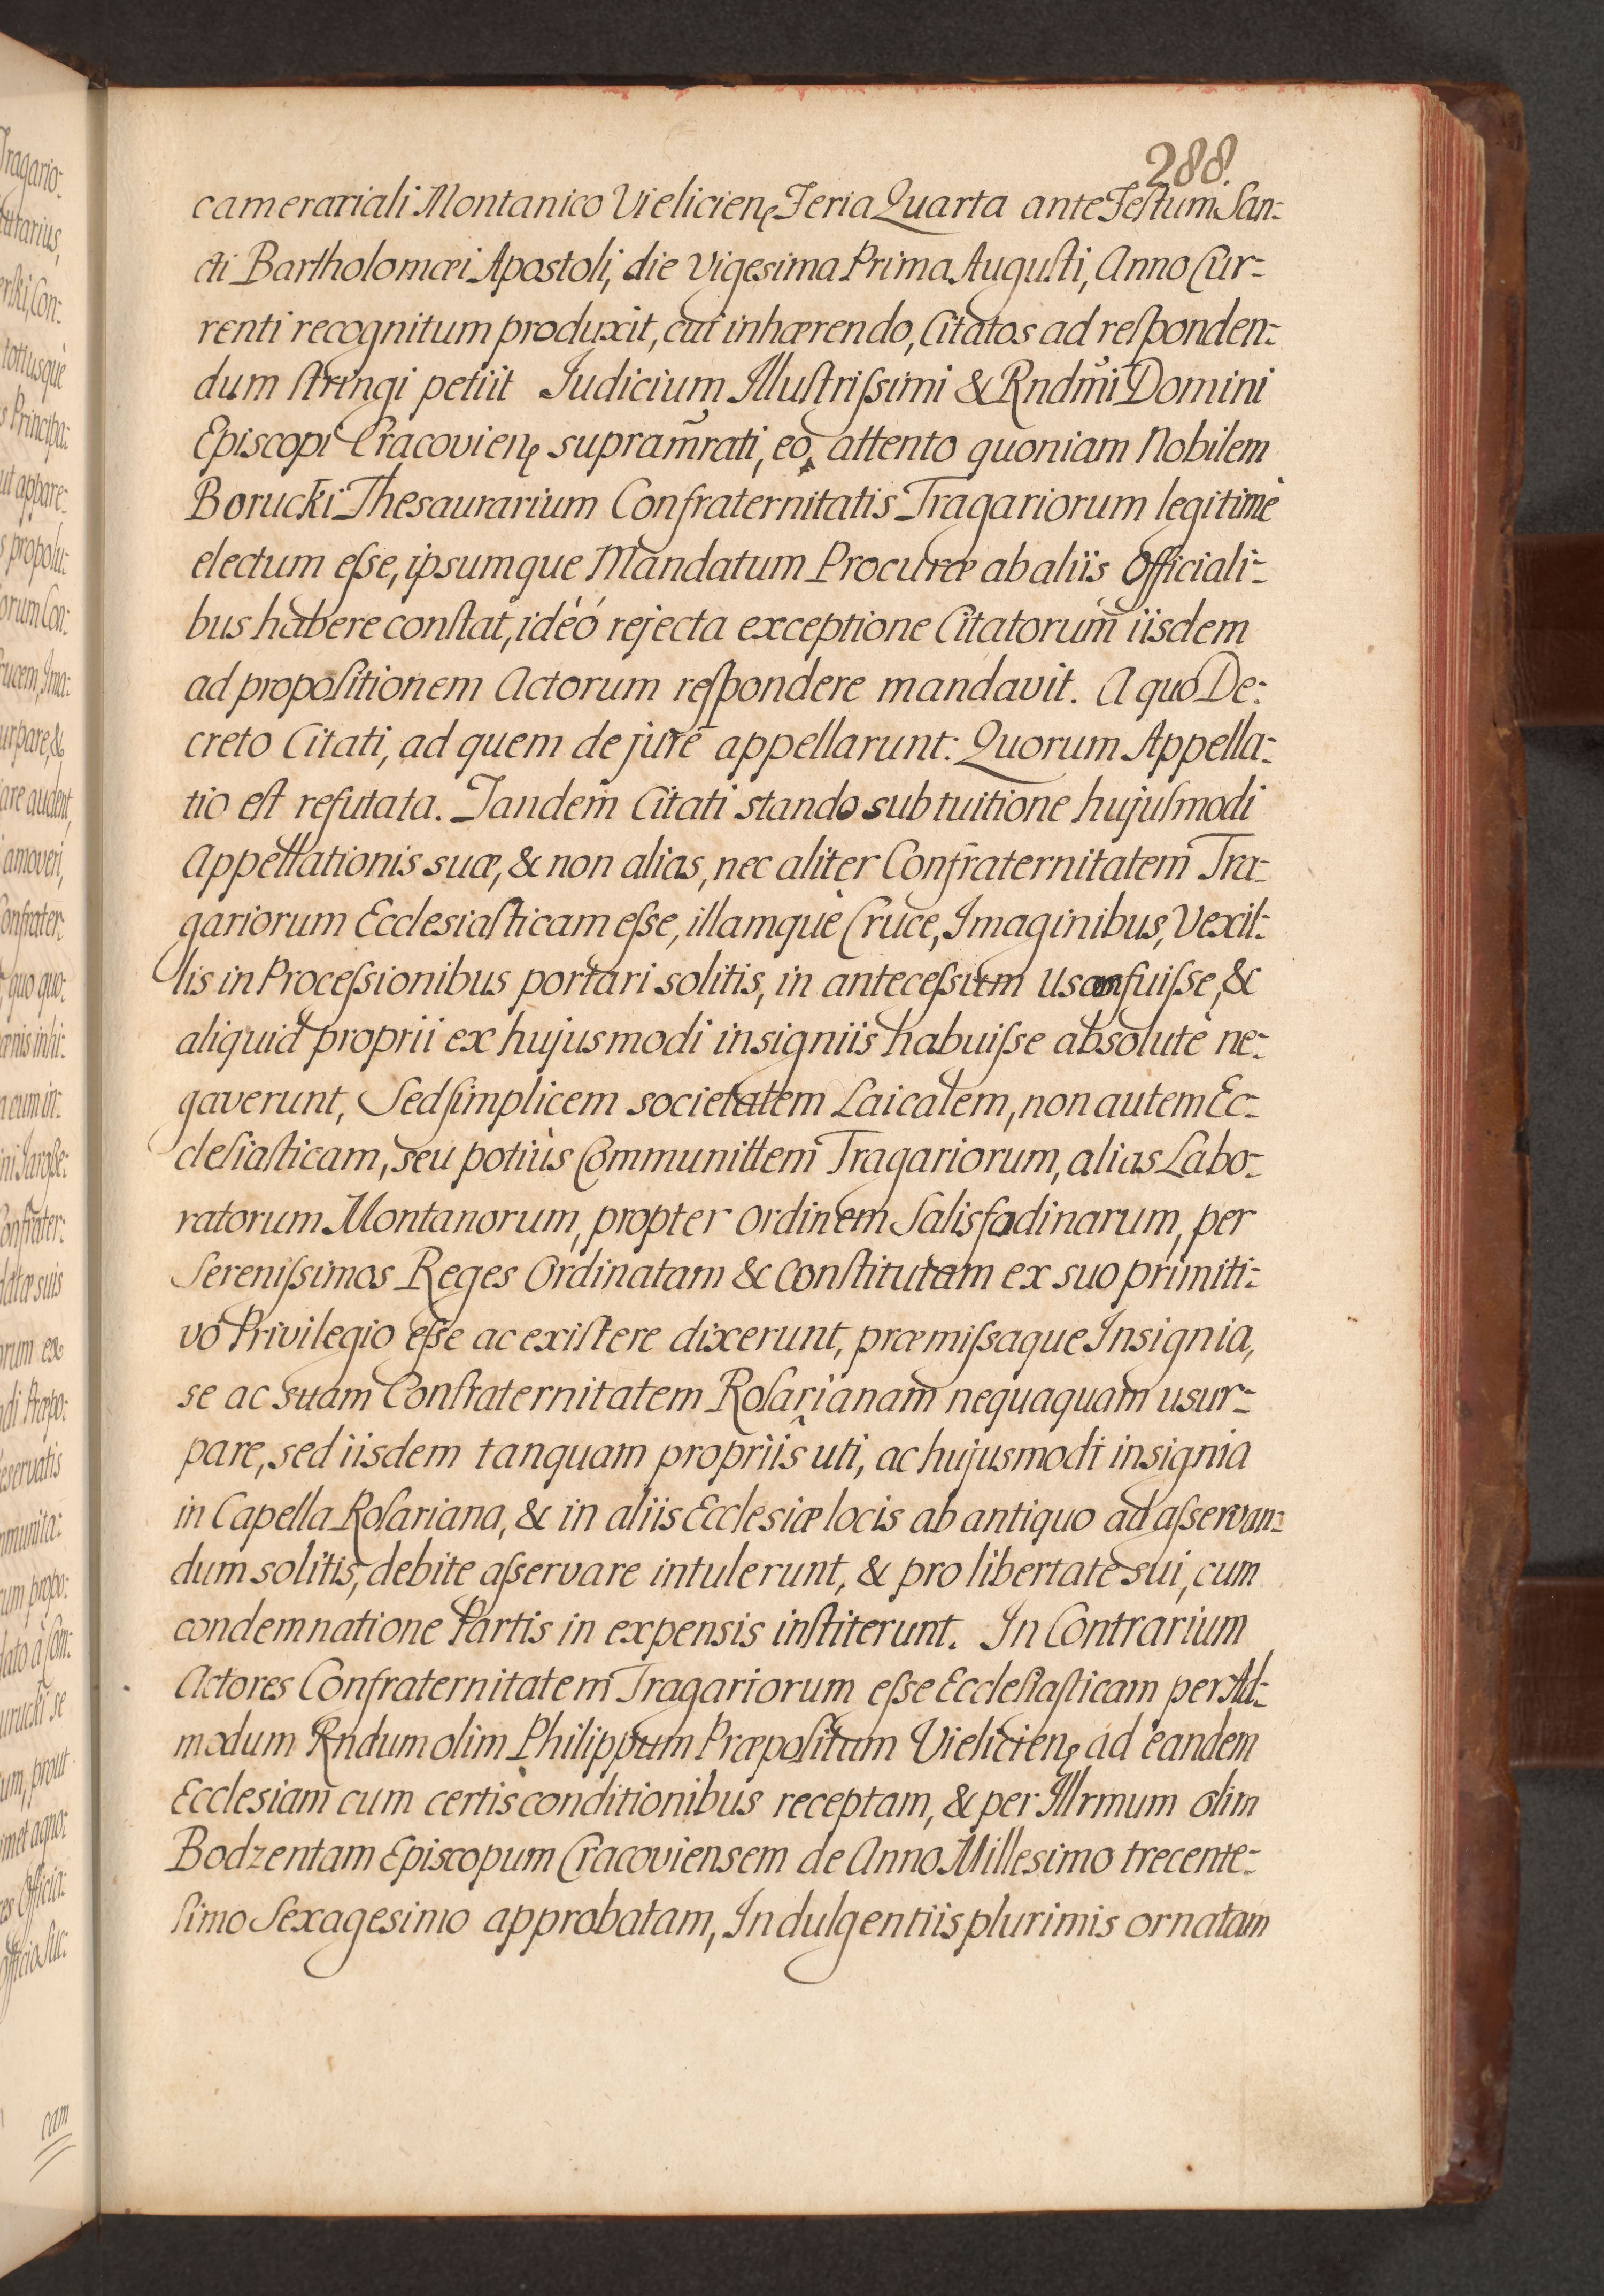 288.
camerariali Montanico Vieliciens̨ Feria Quarta ante Festum San-
cti Bartholomæi Apostoli, die Vigesima Prima Augusti, Anno Cur-
renti recognitum produxit, cui inhærendo, Citatos ad responden-
dum stringi petiit Judicium Illustrissimi & Rndmi Domini
Episcopi Cracovien̨ supramrati, eo attento quoniam Nobilem
Borucki Thesaurarium Confraternitatis Tragariorum legitimè
electum esse, ipsumque Mandatum Procuræ ab aliis Officiali-
bus habere constat, ideó rejecta exceptione Citatorum iisdem
ad propositionem Actorum respondere mandavit. A quó De-
creto Citati, ad quem de jure appellarunt: Quorum Appella-
tio est refutata. Tandem Citati stando sub tuitione hujusmodi
Appellationis suæ, & non alias, nec aliter Confraternitatem Tra-
gariorum Ecclesiasticam esse, illamquè Cruce, Imaginibus, Vexil-
lis in Processionibus portari solitis, in antecessum usam fuisse, &
aliquid proprii ex hujusmodi insigniis habuisse absolutè ne-
gaverunt, Sed simplicem societatem Laicalem, non autem Ec-
clesiasticam, seu potiùs Communittem Tragariorum, alias Labo-
ratorum Montanorum, propter ordinem Salisfodinarum, per
Serenissimos Reges Ordinatam & Constitutam ex suo primiti-
vó Privilegio esse ac existere dixerunt, præmissaque Insignia,
se ac suam Confraternitatem Rosarianam nequaquam usur-
pare, sed iisdem tanquam propriis uti, ac hujusmodi insignia
in Capella Rosariana, & in aliis Ecclesiæ locis ab antiquo ad asservan-
dum solitis, debite asservare intulerunt, & pro libertate sui, cum
condemnatione Partis in expensis institerunt. In Contrarium
Actores Confraternitatem Tragariorum esse Ecclesiasticam per Ad-
modum Rndum olim Philippum Præpositum Vielicien̨ ad eandem
Ecclesiam cum certis conditionibus receptam, & per Illrmum olim
Bodzentam Episcopum Cracoviensem de Anno Millesimo trecente-
simo Sexagesimo approbatam, Indulgentiis plurimis ornatam